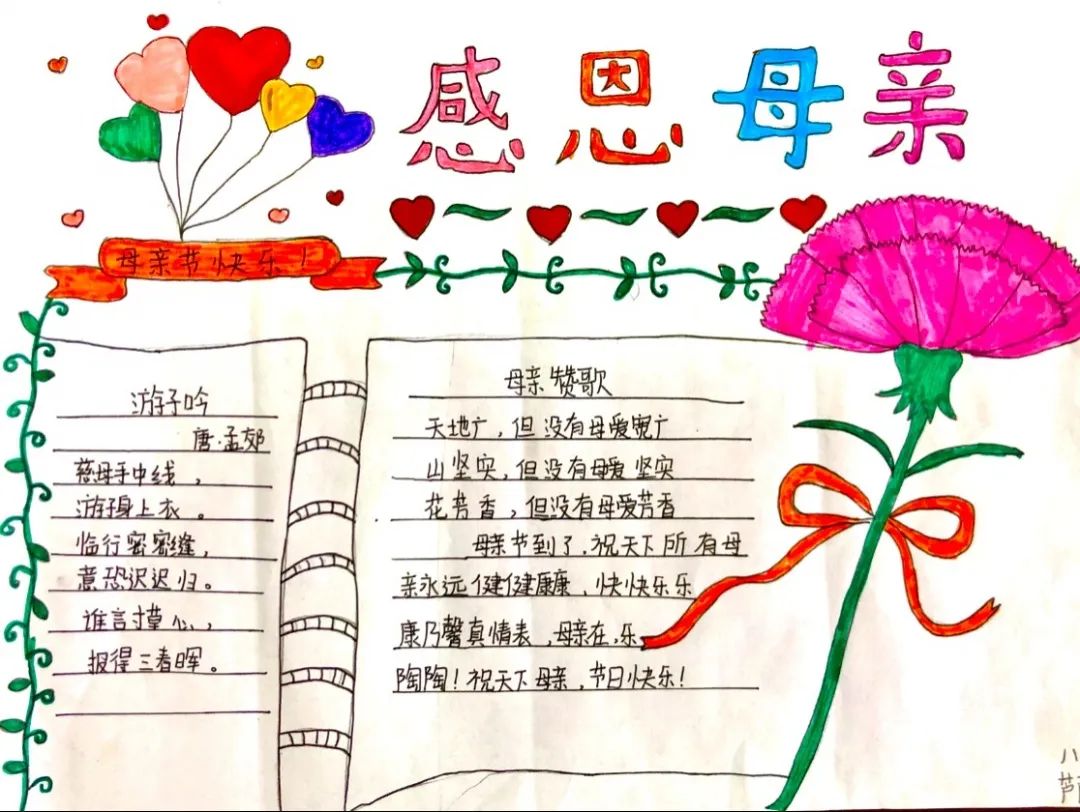 感恩母亲
母亲节快乐！
游子吟
唐·孟郊
慈母手中线，
游子身上衣。
临行密密缝，
意恐迟迟归。
谁言寸草心，
报得三春晖。
母亲赞歌
天地广，但没有母爱宽广
山坚实，但没有母爱坚实
花芳香，但没有母爱芳香
母亲节到了，祝天下所有母
亲永远健健康康、快快乐乐
康乃馨真情表，母亲在，乐
陶陶！祝天下母亲，节日快乐！
八
芦